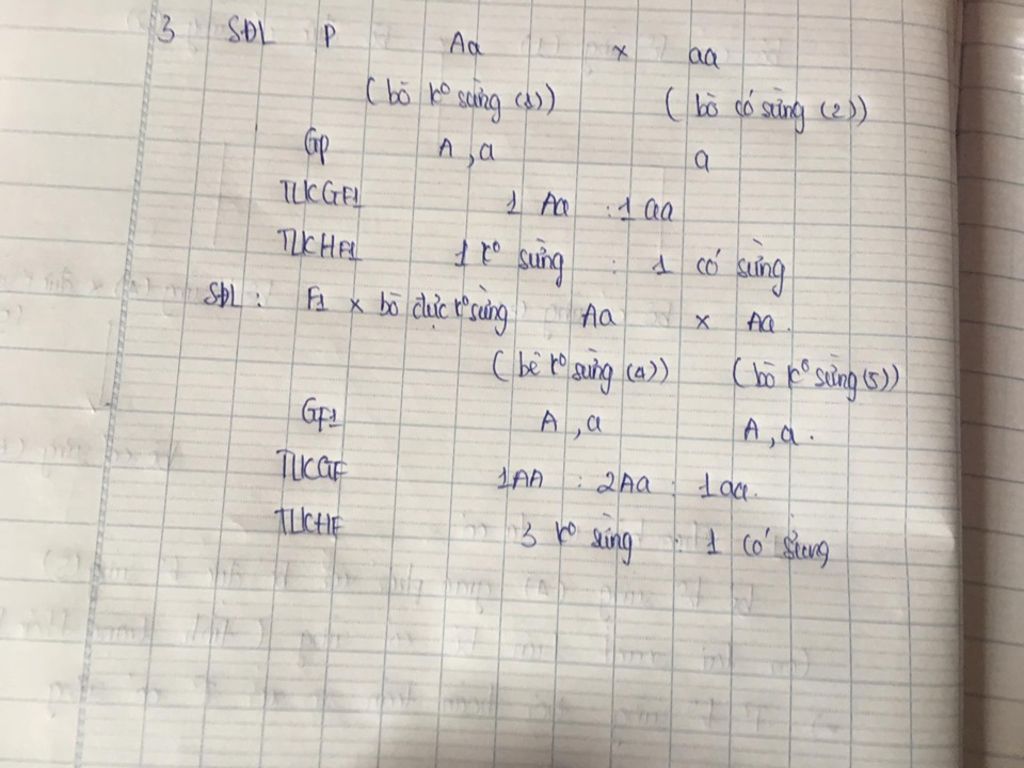 3 SĐL P Aa x aa
(bò k° sừng (1)) (bò có sừng (2))
GP A, a a
TLKGF1 1 Aa : 1 aa
TLKHF1 1 k° sừng : 1 có sừng
SĐL: F1 x bò đực k° sừng Aa x Aa.
(bê k° sừng (4)) (bò k° sừng (5))
GF1 A, a A, a.
TLKGF 1AA : 2Aa : 1aa.
TLKHF 3 k° sừng : 1 có sừng